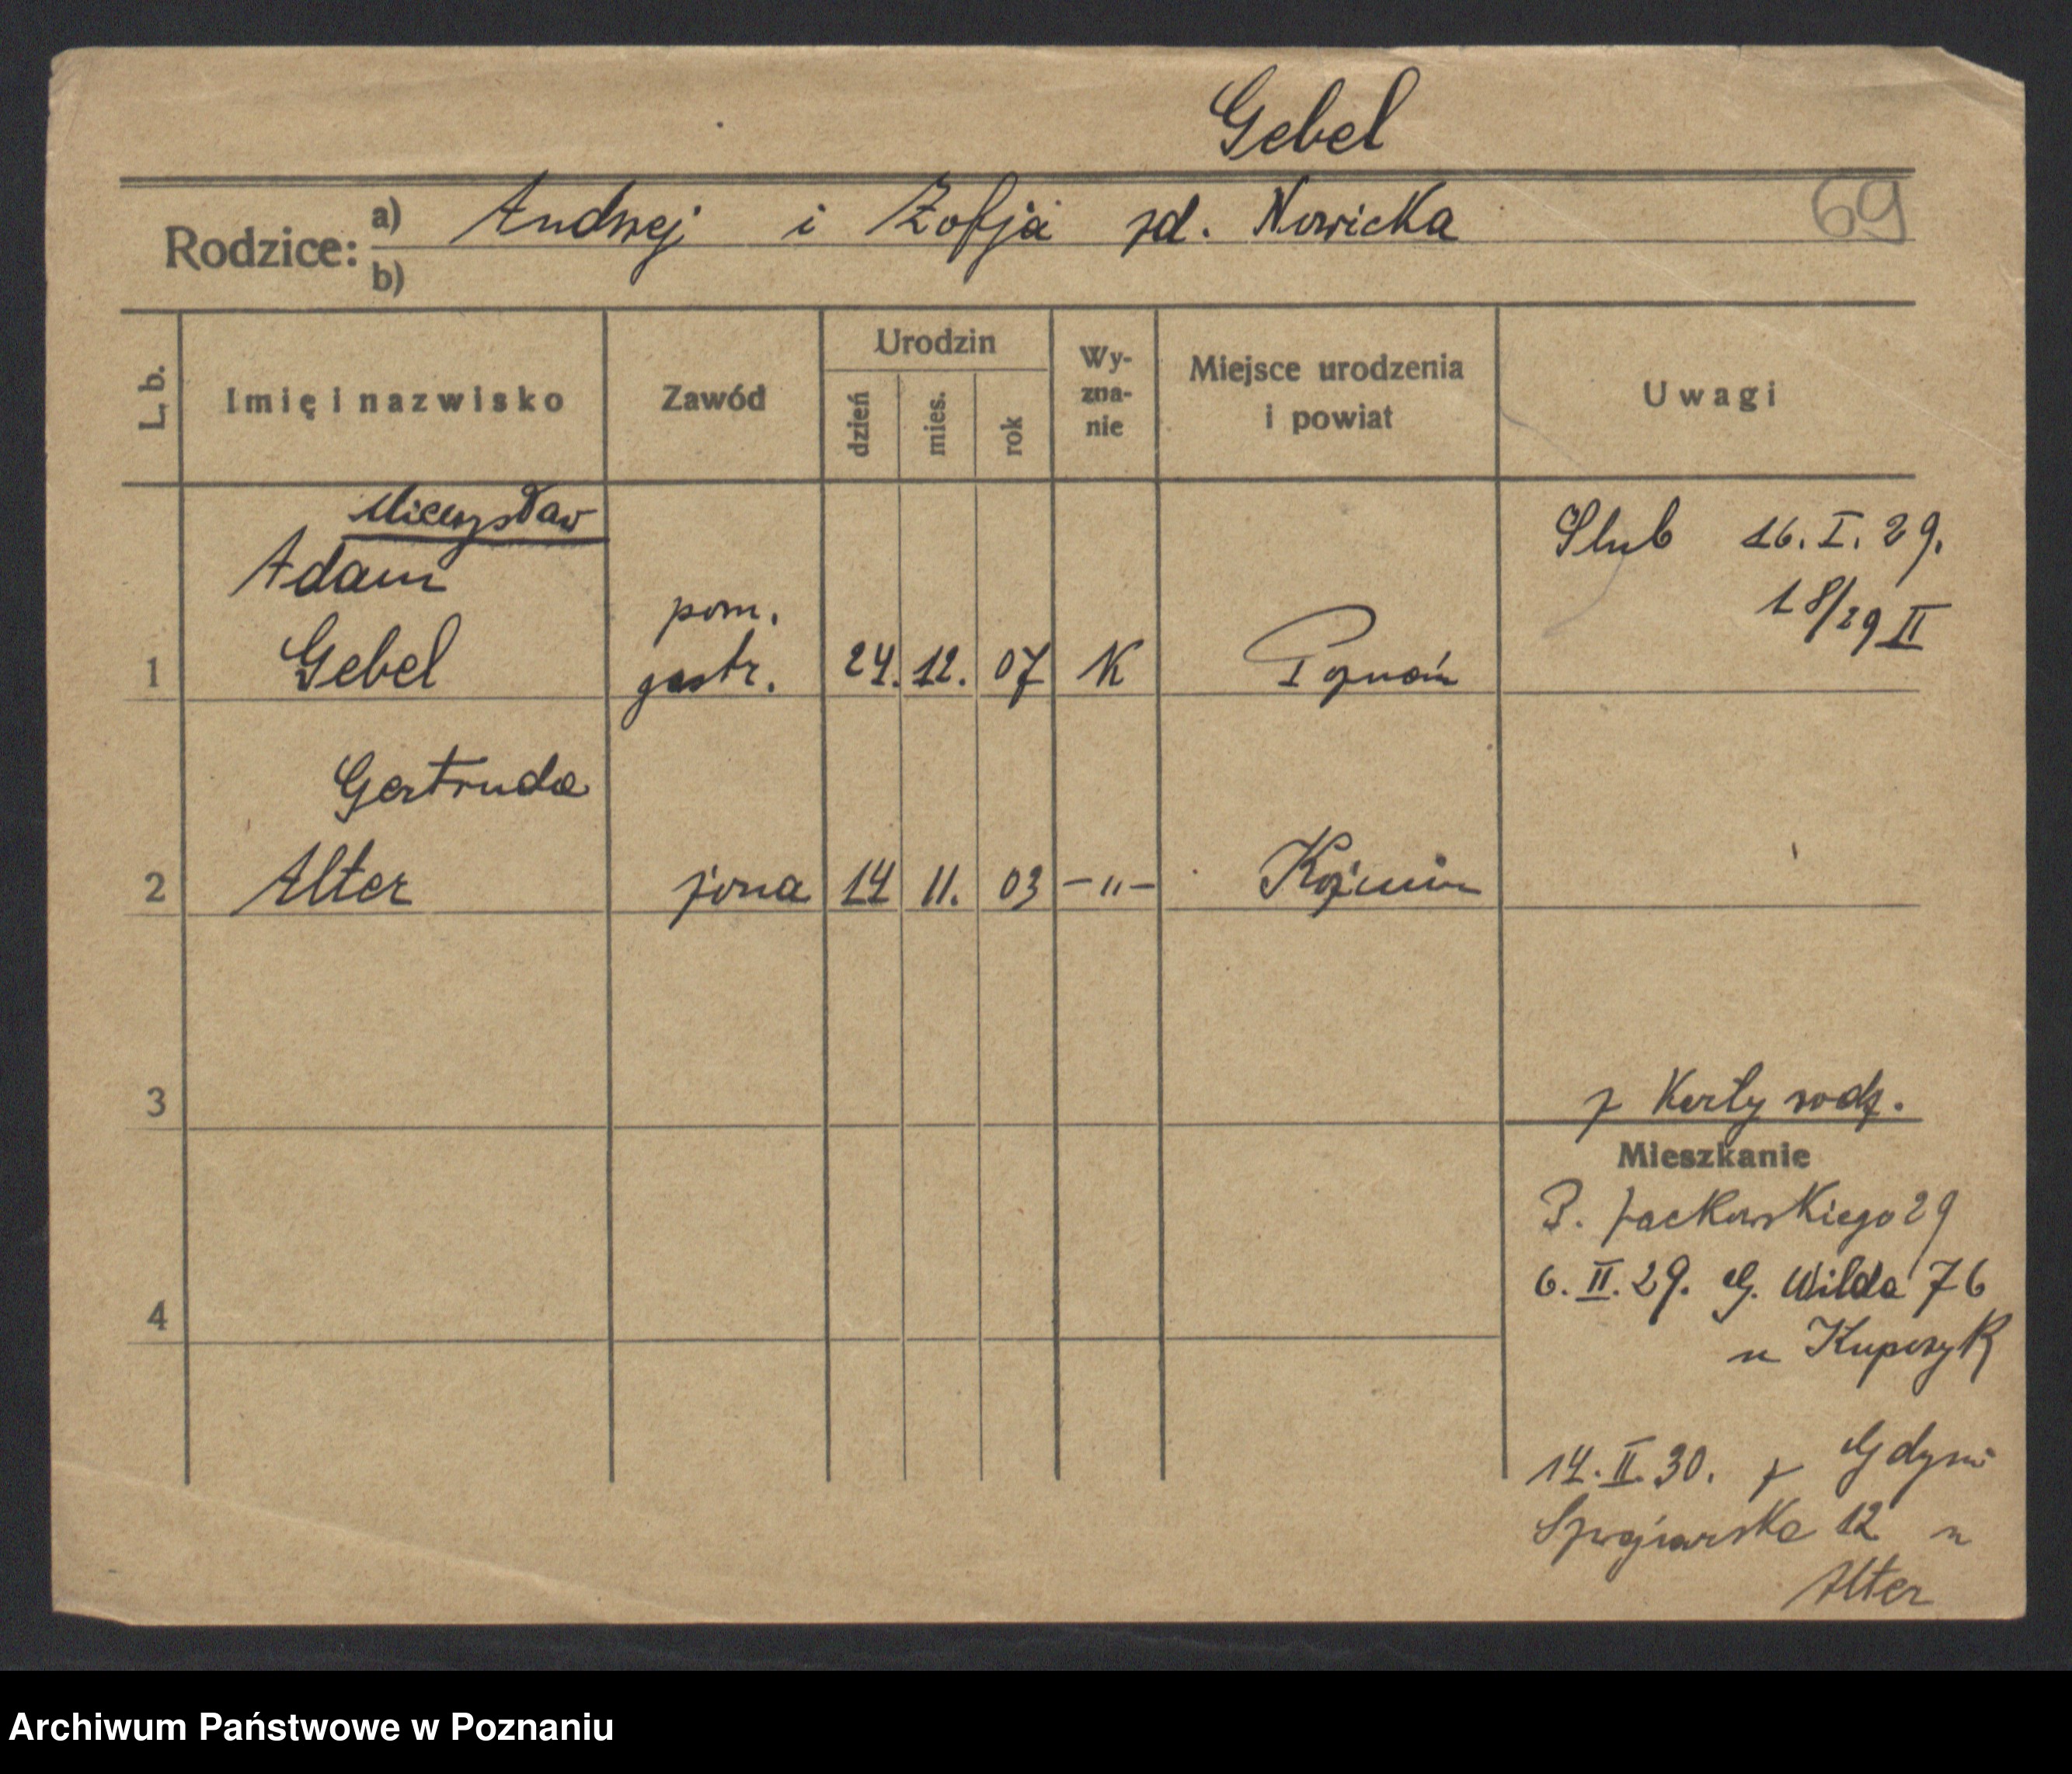 Gebel
Rodzice: a) Andrzej i Zofja zd. Nowicka 69
b)
L. b. Imię i nazwisko Zawód Urodzin dzień mies. rok Wy-zna-nie Miejsce urodzenia i powiat Uwagi
Mieczysław
Adam
Ślub 16. I. 29.
18/29 II
pom.
1 Gebel gastr. 24. 12. 07 K Poznań
Gertruda
2 Alter żona 14 11. 03 -"- Koźmin
3 z Karty rodz.
Mieszkanie
P. Jackowskiego 29
6. II. 29. G. Wilda 76
4
u Kupczyk
14. II. 30. z Gdyni
Szwajcarska 12 u
Alter
Archiwum Państwowe w Poznaniu